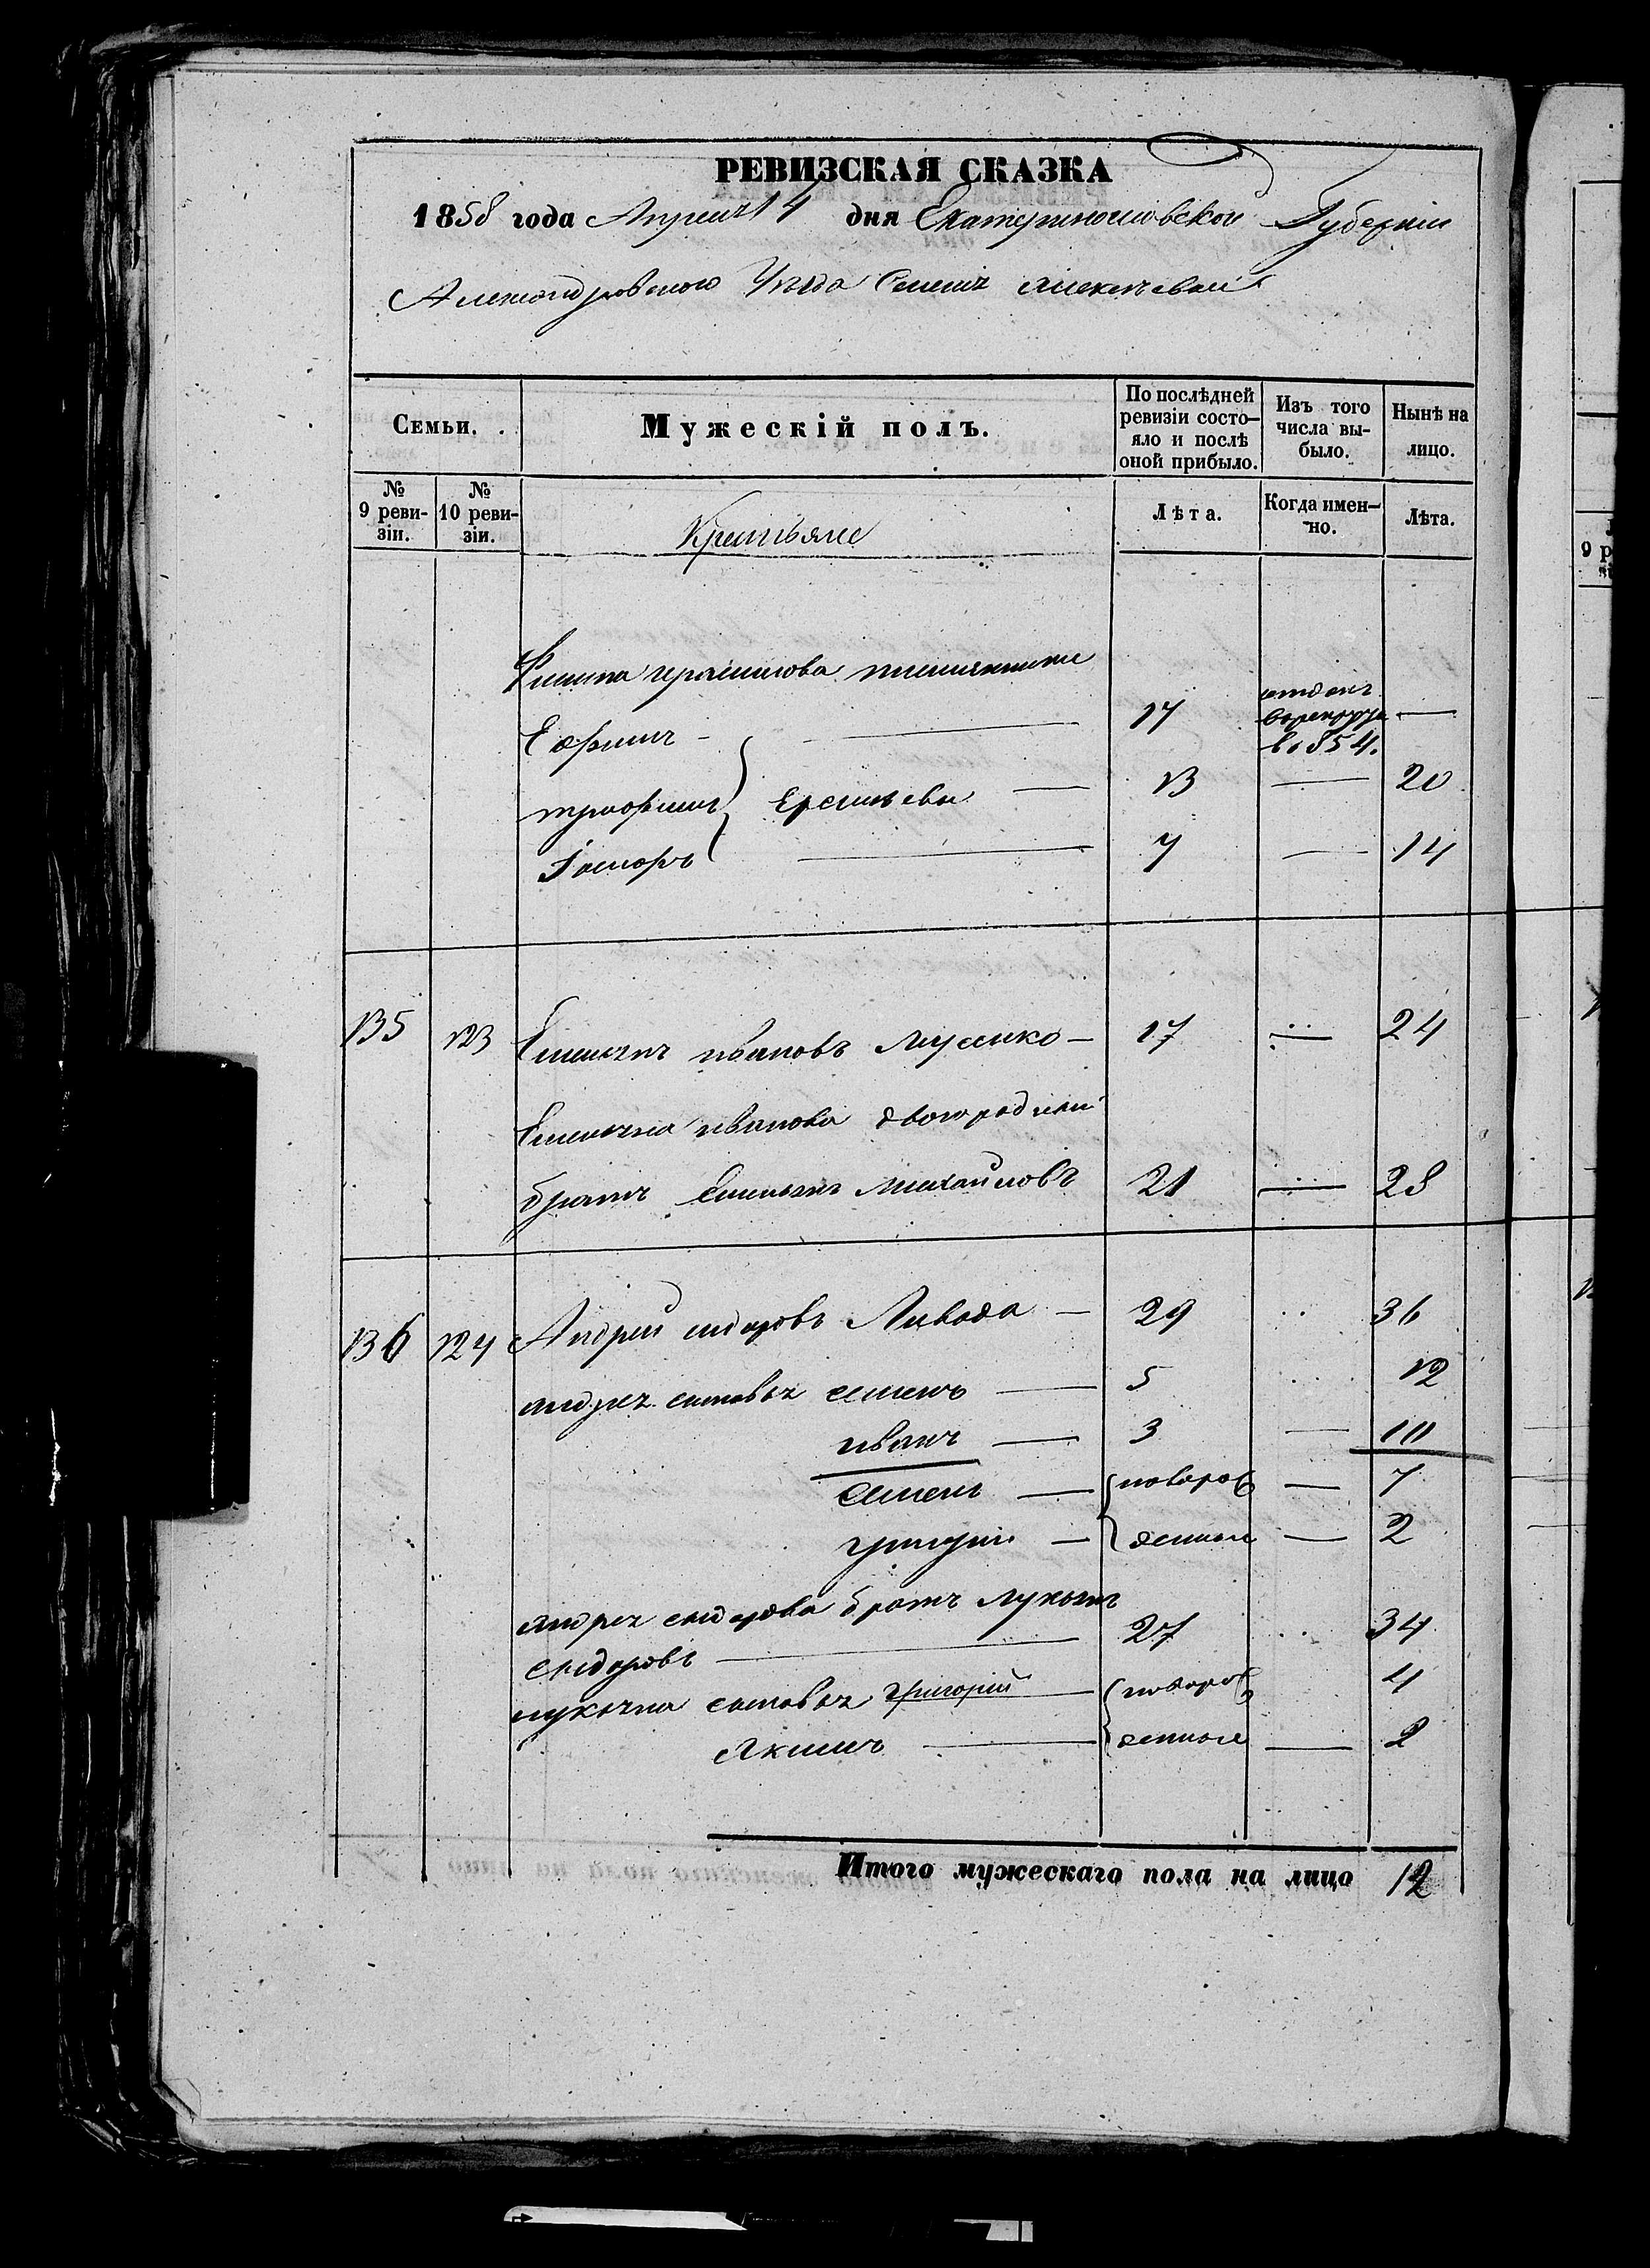 РЕВИЗСКАЯ СКАЗКА
1858 года Апреля 14 дня Екатеринославской Губернии
Александровского Уезда Селения Алексеевки
Семьи.
Мужескій полъ.
По послѣдней ревизіи состо-
яло и послѣ
оной прибыло.
Изъ того
числа вы-
было.
Нынѣ на
лицо.
№
9 реви-
зіи.
№
10 реви-
зіи.
Крестьяне
Лѣта.
Когда имен-
но.
Лѣта.
9 р
Филипа герасимова племянники
Ефимъ 17 отданъ
в рекруты —
в 1854.
трофимъ } Ереміевы 13 — 20
7 — 14
135 123 Емельянъ ивановъ Мусико 17 — 24
Емельяна иванова двоюродный
братъ Емельянъ михайловъ 21 — 28
136 124 Андрей сидоровъ Левада 29 36
андрея сыновья семенъ 5 12
иванъ 3 — 10
семенъ { новорож — 7
григорий { денные — 2
андрея сидорова братъ лукьянъ
сидоровъ 27 34
лукьяна сыновья григорий { новорож 4
Якимъ { денные — 2
Итого мужескаго пола на лицо 12